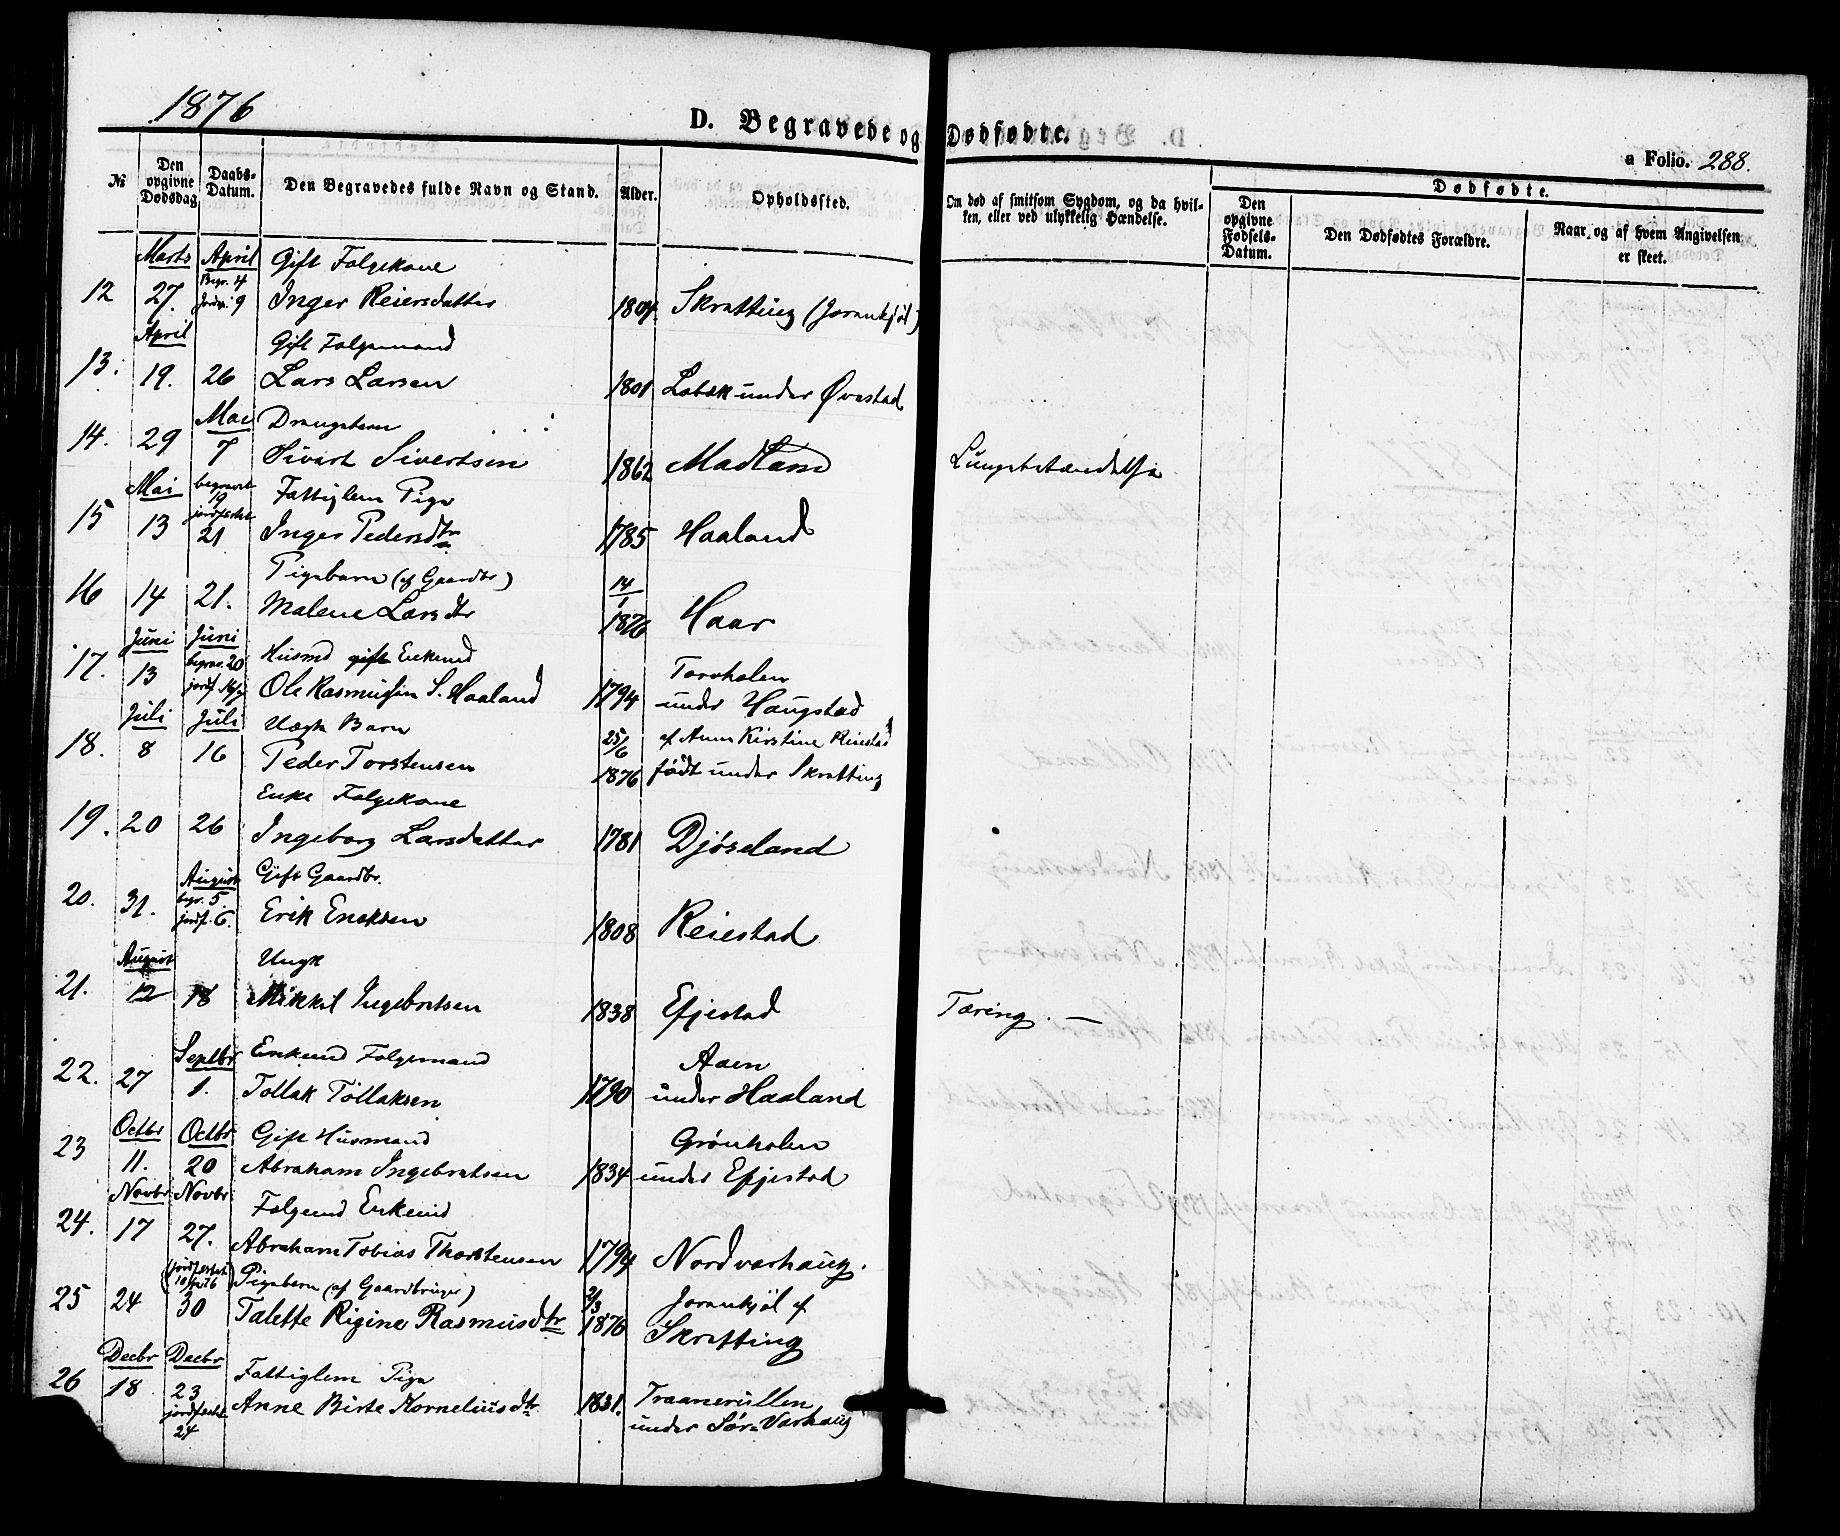 1876
D. Begravede og Dødfødte.
a Folio. 288.
№
Den opgivne Dødsdag
Daabs-Datum.
Den Begravedes fulde Navn og Stand.
Alder.
Opholdssted.
Om død af smitsom Sygdom, og da hvilken, eller ved ulykkelig Hændelse.
Dødfødte.
Den opgivne Fødsels-Datum.
Den Dødfødtes Forældre.
Naar og af hvem Angivelsen er skeet.
Marts April Gift Folgekone
12 27. Begr. 4 Jordp. 9 Inger Reiersdatter 1804. Skretting (Joraukjøl)
April Gift Folgemand
13. 19. 26 Lars Larsen 1801 under Øvestad
Mai Drengebarn
14. 29 7 Sivert Sivertsen 1862 Madland Lungebetændelse
Mai begravet 19 Fattiglem Pige
15 13 jordfæstet 21 Inger Pedersdtr 1785 Haaland
Pigebarn (af Gaardbr)
16 14 21. Malene Larsdtr 14/1 1876 Haar
Juni Juni Husmd gift Enkemd Torvholen
17. 13 begrav. 20 jordf. Ole Rasmussen S. Haaland 1794 under Haugstad
Juli Juli Uægte Barn af Anne Kirstine Reiestad
18. 8 16 Peder Torstensen 25/6 1876 født under Skretting
Enke Folgekone
19. 20 26 Ingeborg Larsdatter 1781 Djøseland
August Gift Gaardbr.
20. 31. begr. 5. jordf. 6. Erik Eneksen 1808 Reiestad
August Ungk
21. 12 18 Mikkel Ingebretsen 1838 Efjestad Tæring. —
Septbr Enkemd Folgemand Aaen
22. 27 1. Tollak Tollaksen 1790 under Haaland
Octbr Octbr Gift Husmand Grønholen
23 11. 20 Abraham Ingebretsen 1834 under Efjestad
Novbr Novbr Folgemd Enkemd
24. 17 27. Abraham Tobias Thorstensen 1794 Nordvarhaug.
(jordfæstet 10/12 76) Pigebarn (af Gaardbruger) Joraukjøl af
25 24 30 Talette Rigine Rasmusdtr 2/3 1876 Skretting
Decbr Decbr Fattiglem Pige
26 18 23 Anne Birte Kornelius dtr 1831. Traanerullen
jordfæstet 24 under Sør-Varhaug